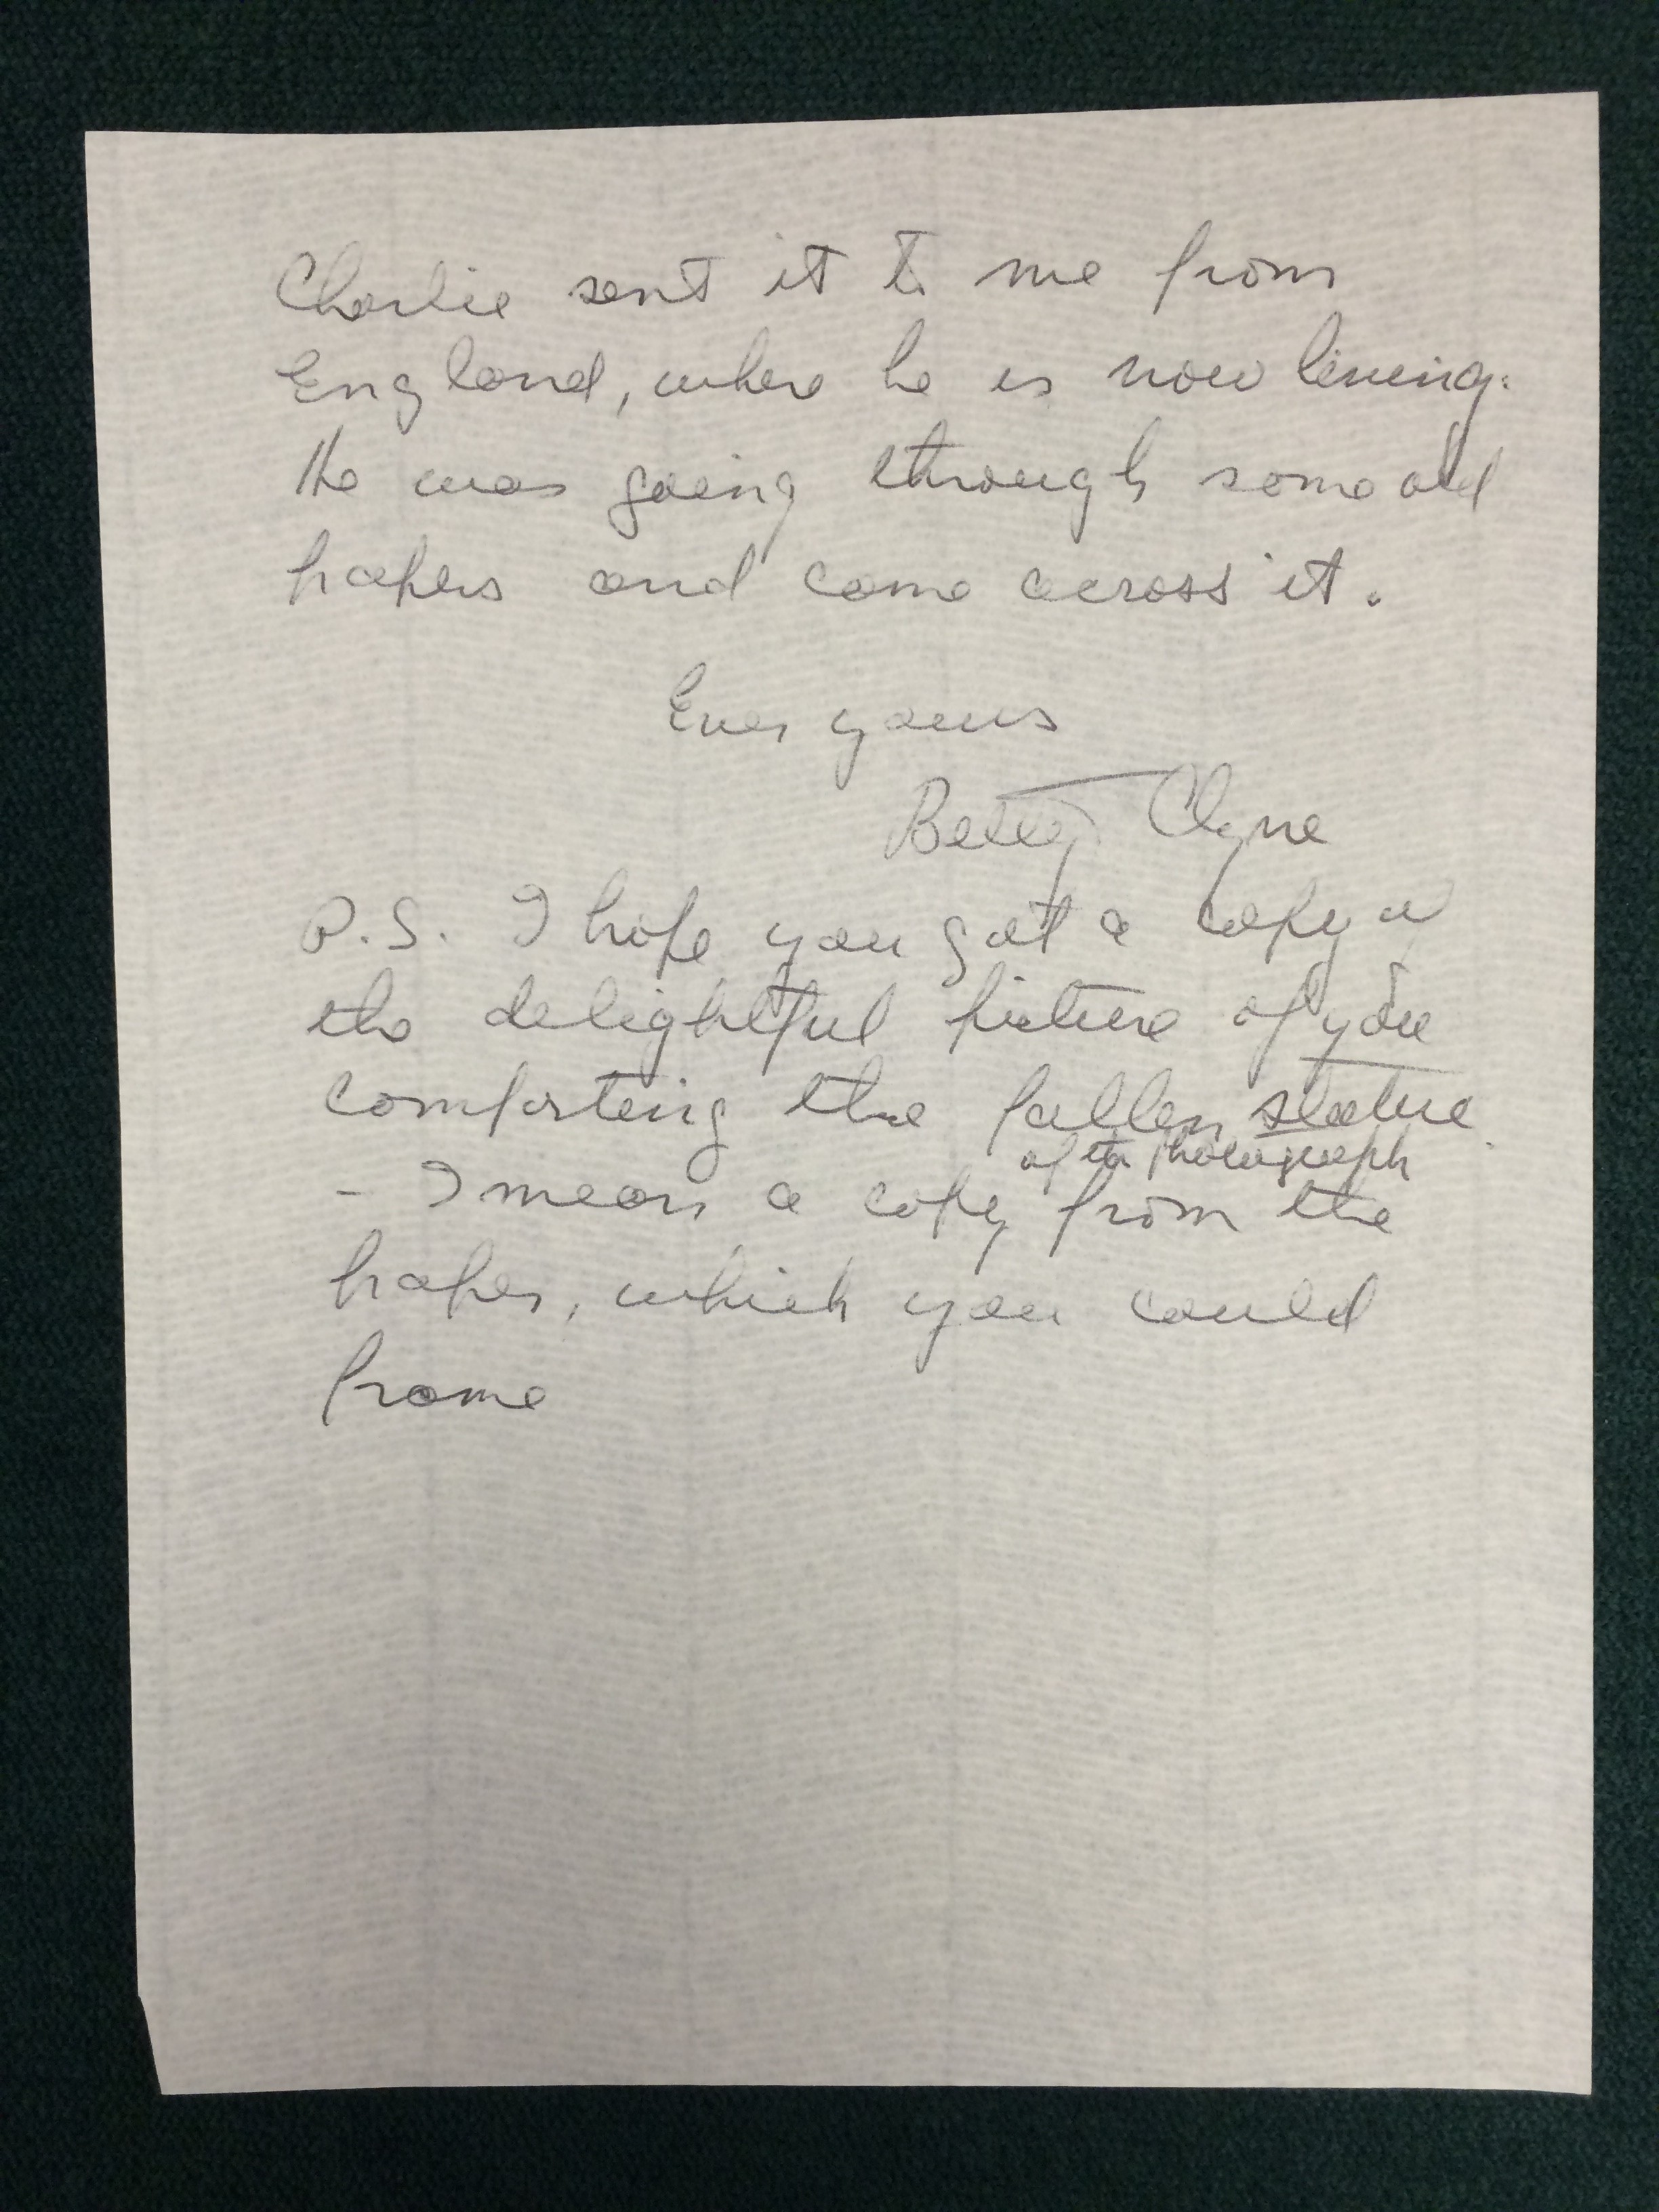 Charlie sent it to me from
England, where he is now living.
He was going through some old
papers and came across it.
Ever yours
Betty Clyne
P.S. I hope you got a copy of
the delightful picture of you
comforting the fallen statue.
of the photograph
- I mean a copy from the
paper, which you could
frame